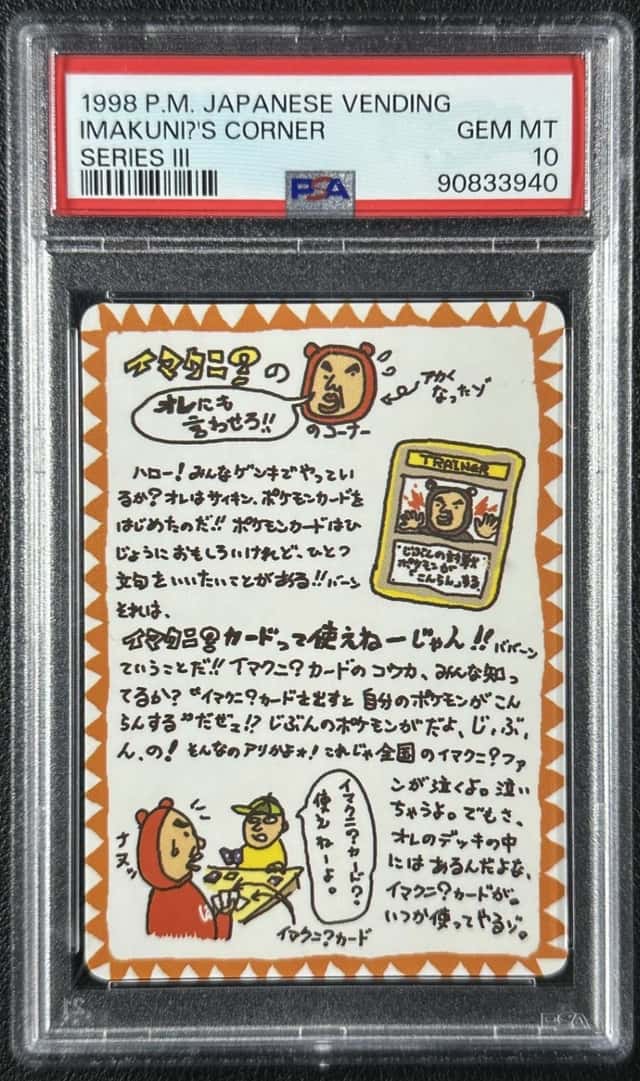 1998 P.M. JAPANESE VENDING
IMAKUNI?'S CORNER GEM MT
SERIES III 10
PSA 90833940
イマクニ?の
オレにも
言わせろ!!
のコーナー
アカく
なったゾ
ハロー!みんなゲンキでやってい
るか?オレはサイキン、ポケモンカードを
はじめたのだ!!ポケモンカードはひ
じょうにおもしろいけれど、ひとつ
文句をいいたいことがある!!バーン
それは、
TRAINER
じぶんの対戦
ポケモンが
"こんらん"する
イマクニ?カードって使えねーじゃん!!ババーン
ていうことだ!!イマクニ?カードのコウカ、みんな知っ
てるか?"イマクニ?カードを出すと自分のポケモンがこん
らんする"だぜェ!?じぶんのポケモンがだよ、じ、ぶ、
ん、の!そんなのアリかよォ!これじゃ全国のイマクニ?ファ
ンが泣くよ。泣い
ちゃうよ。でもさ、
オレのデッキの中
にはあるんだよな、
イマクニ?カードが。
いつか使ってやるゾ。
イマクニ?カード?
使えねーよ。
ナヌッ
イマクニ?カード
PSA